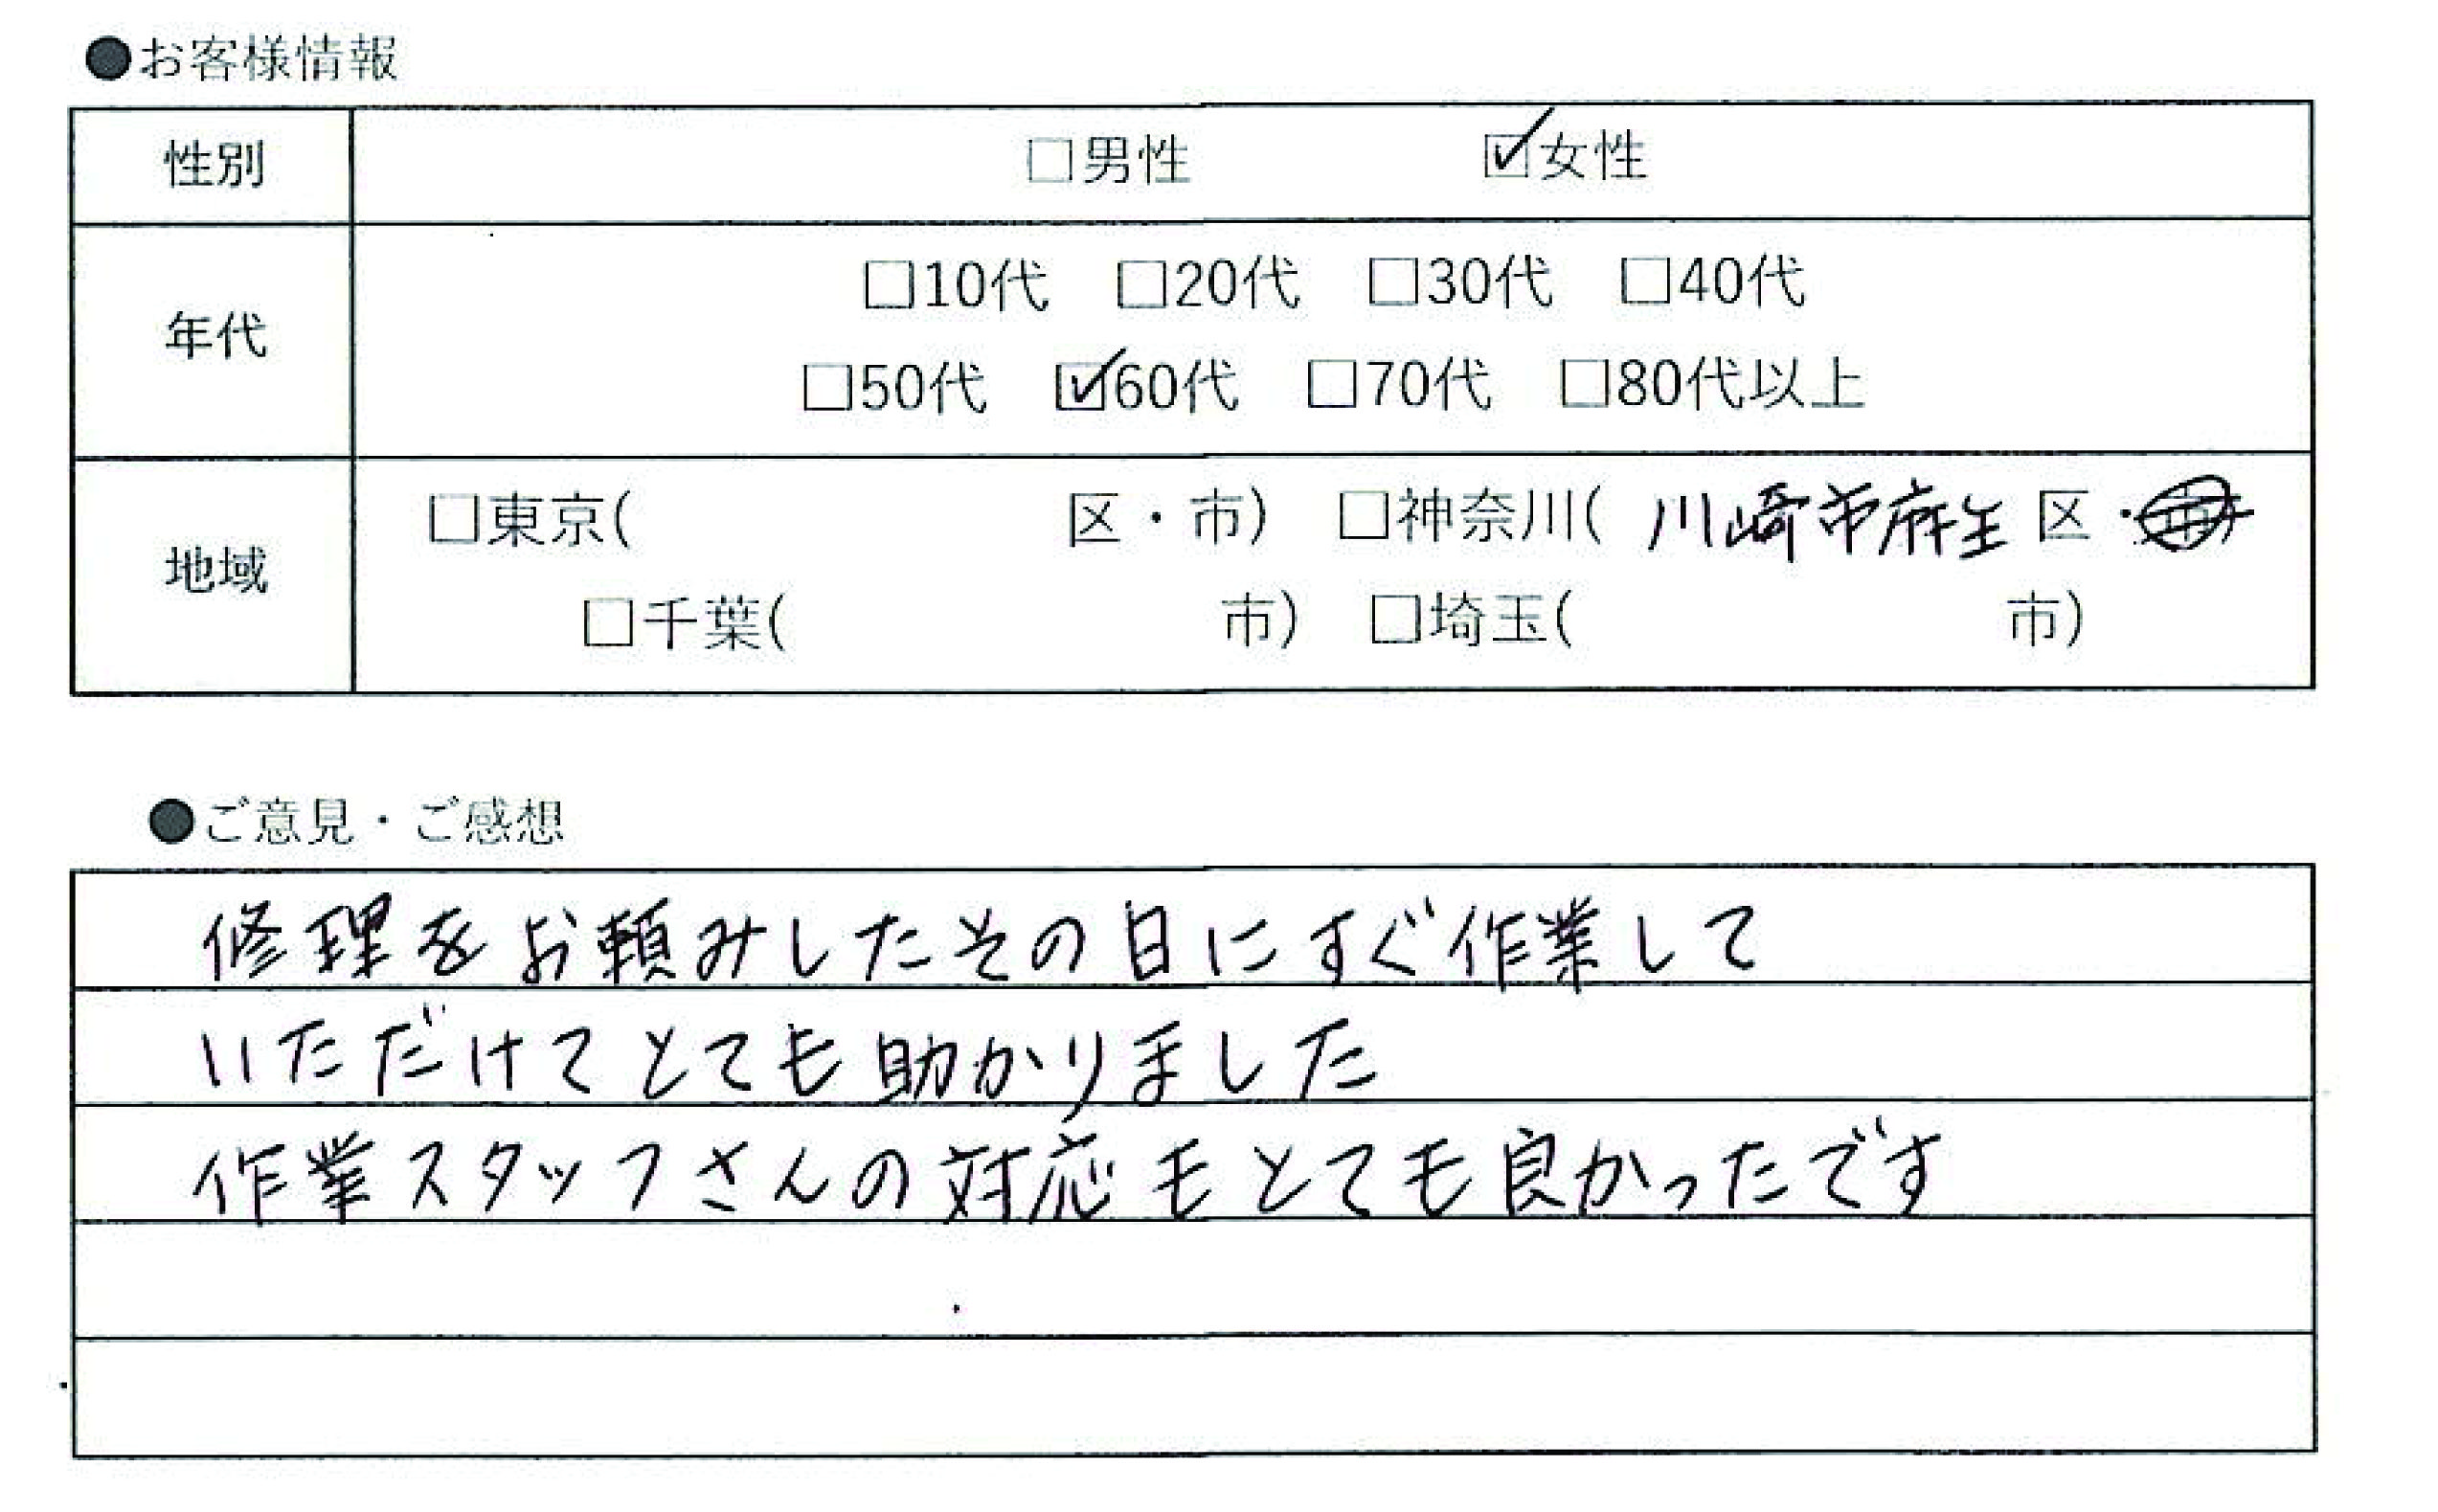 ●お客様情報
性別 □男性 ☑女性
年代 □10代 □20代 □30代 □40代
□50代 ☑60代 □70代 □80代以上
地域 □東京( 区・市) □神奈川( 川崎市麻生 区・
□千葉( 市) □埼玉( 市)
●ご意見・ご感想
修理をお頼みしたその日にすぐ作業して
いただけてとても助かりました
作業スタッフさんの対応もとても良かったです